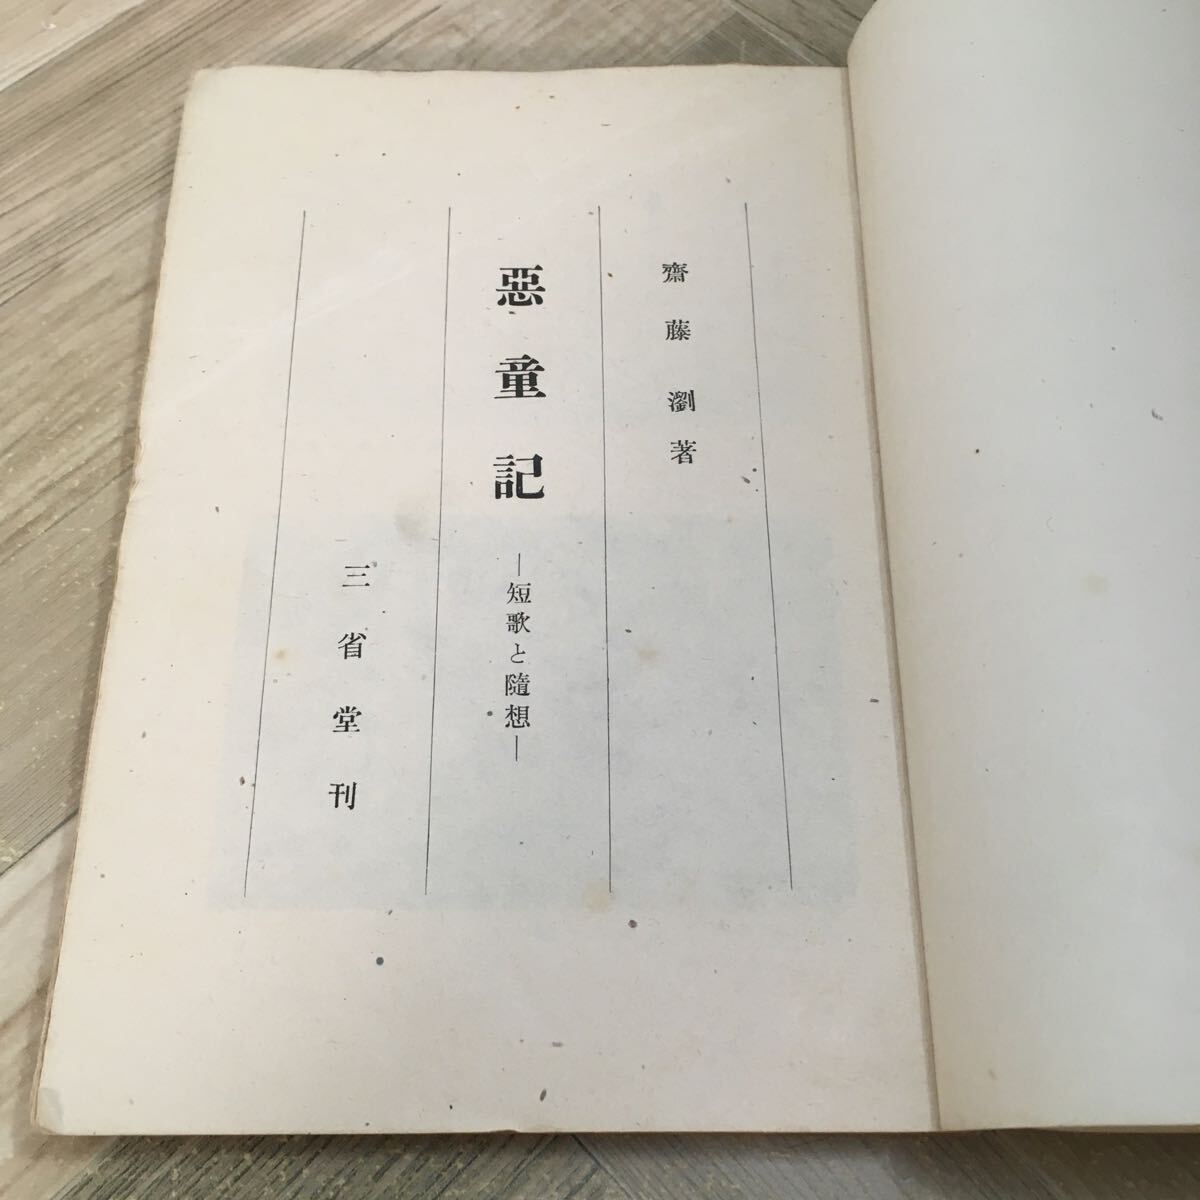 齋藤瀏著
惡童記
―短歌と隨想―
三省堂刊